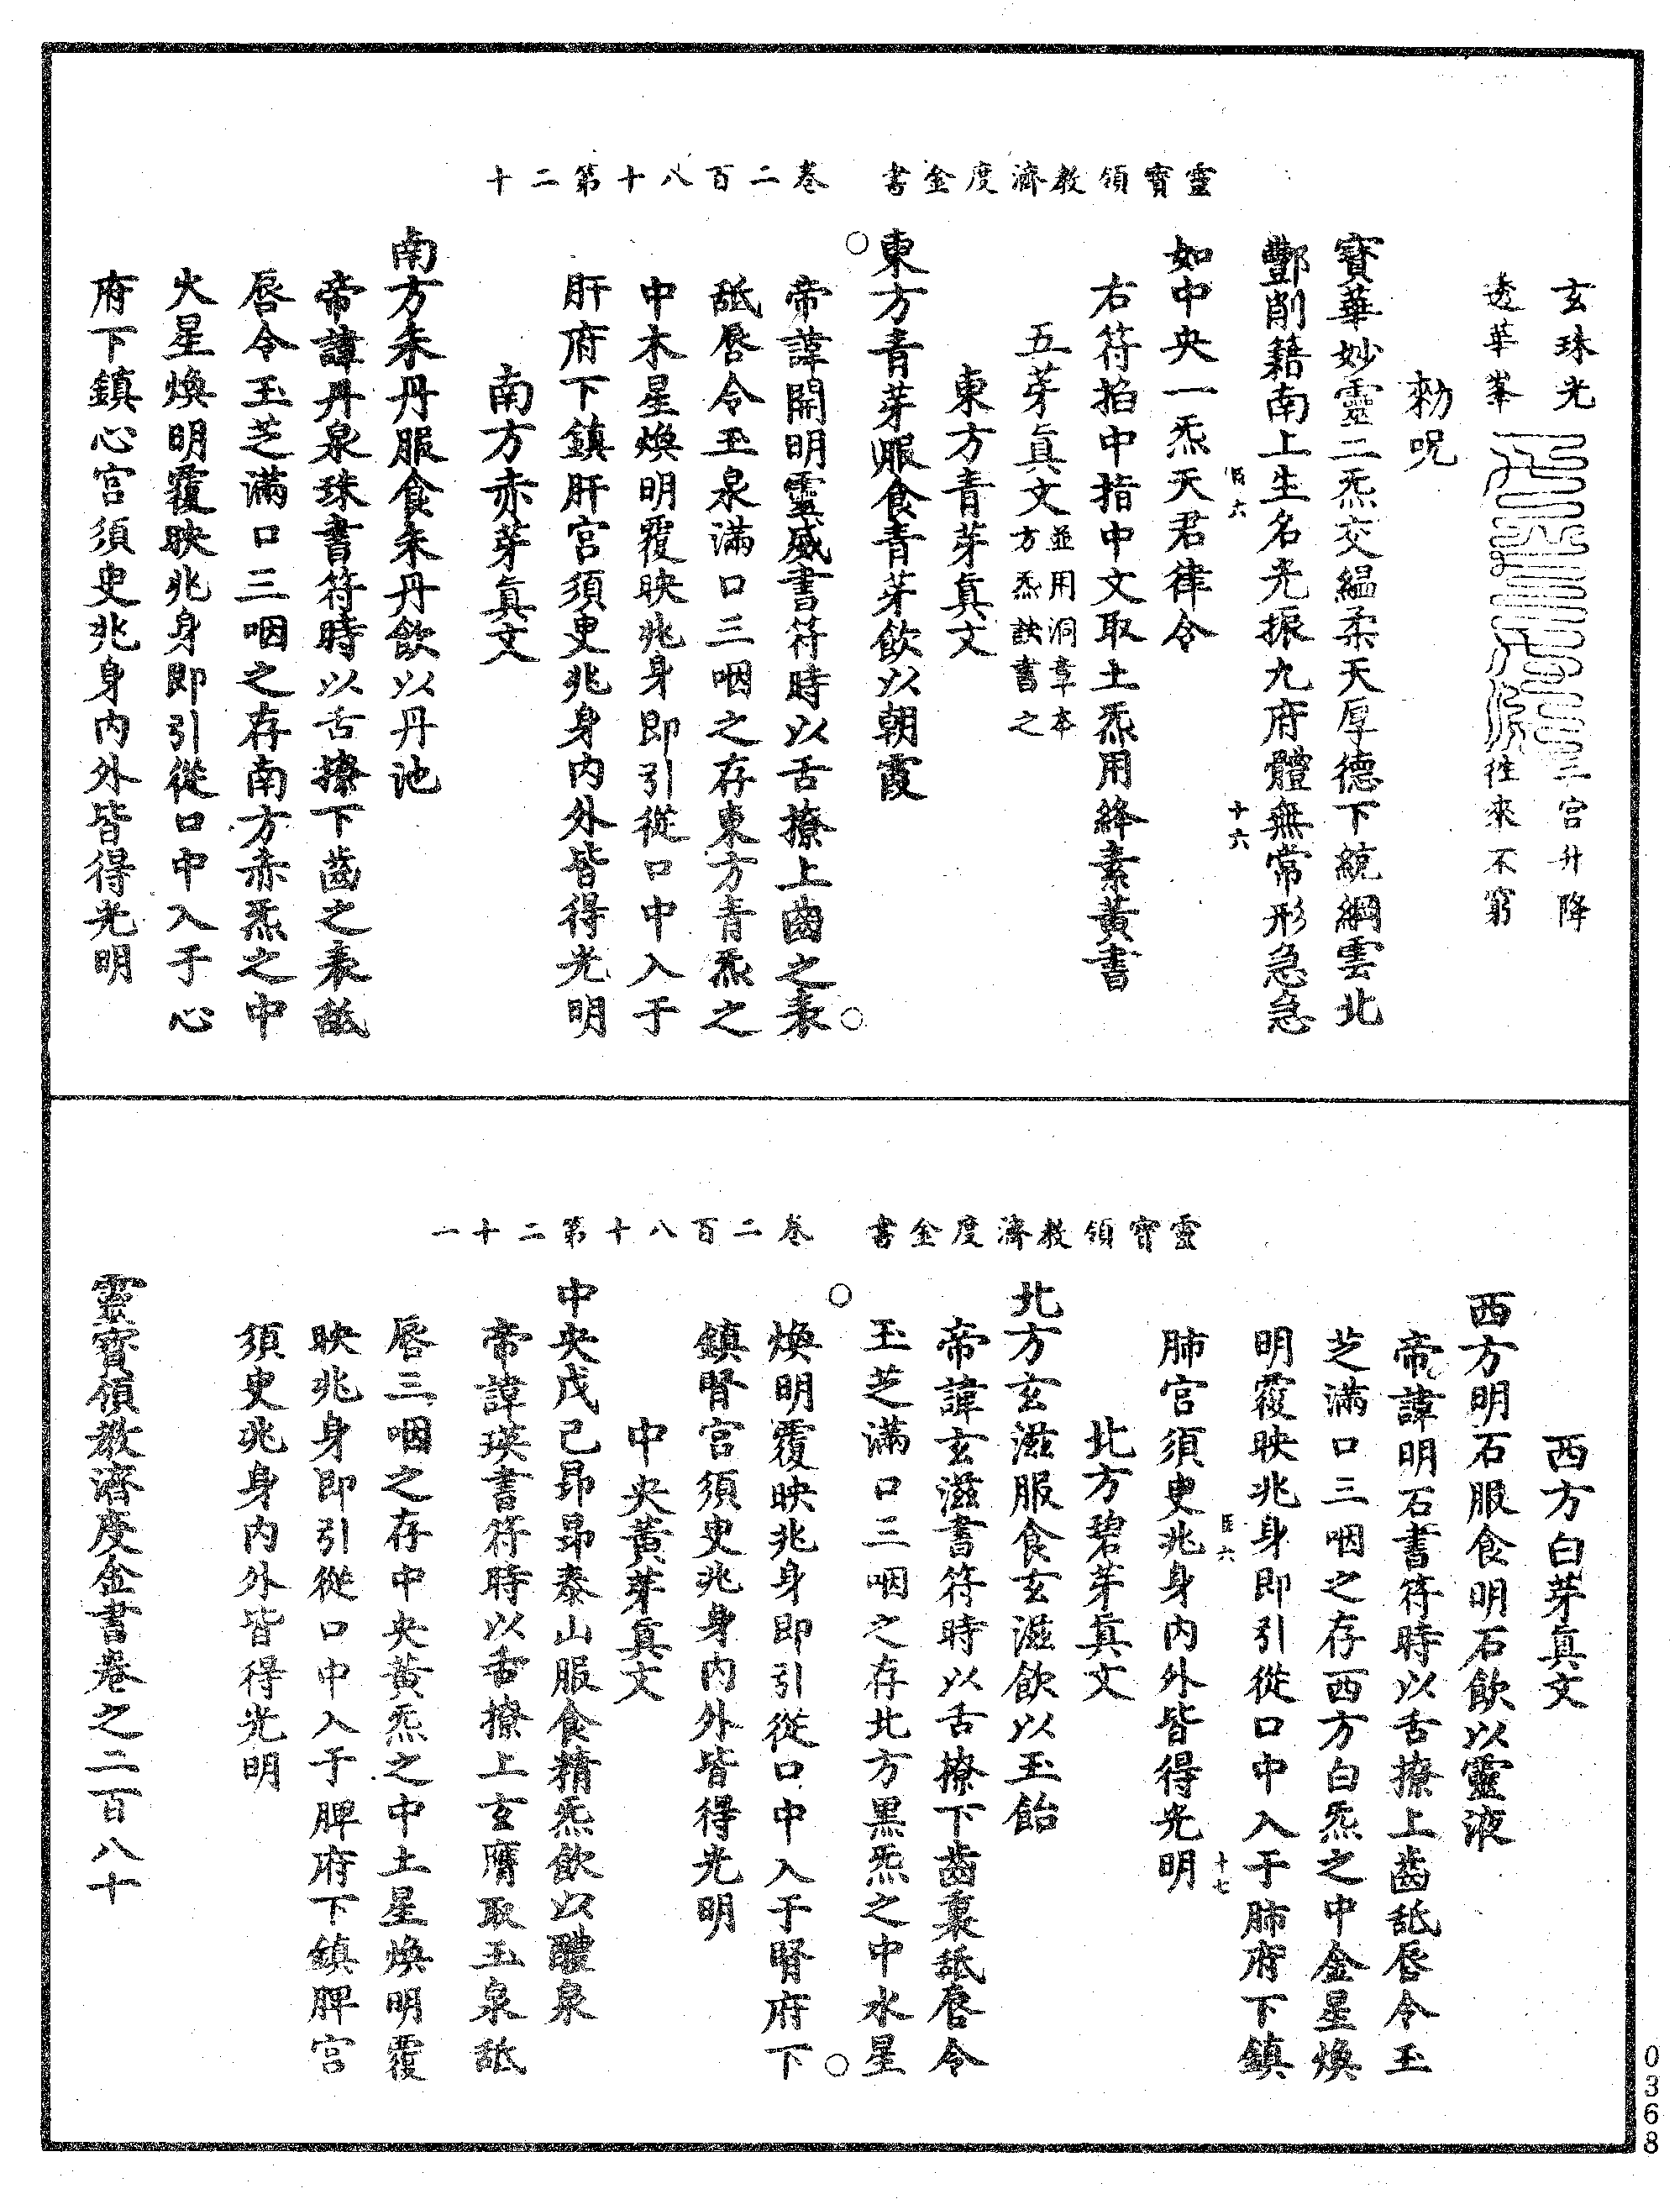 靈寶領教濟度金書　卷二百八十第二十
玄珠光
三宮升降
透華峯
往來不窮
勑呪
寶華妙靈二炁交縕柔天厚德下統綱雲北
酆削籍南上生名光振九府體無常形急急
六　十六
如中央一炁天君律令
右符掐中指中文取土炁用絳素黃書
五芽真文並用洞章本方炁訣書之
東方青芽真文
東方青芽服食青芽飲以朝霞
帝諱開明靈威書符時以舌撩上齒之表
舐唇令玉泉滿口三咽之存東方青炁之
中木星煥明覆映兆身即引從口中入于
肝府下鎮肝宮須臾兆身內外皆得光明
南方赤芽真文
南方朱丹服食朱丹飲以丹池
帝諱丹泉珠書符時以舌撩下齒之表舐
唇令玉芝滿口三咽之存南方赤炁之中
火星煥明覆映兆身即引從口中入于心
府下鎮心宮須臾兆身內外皆得光明
靈寶領教濟度金書　卷二百八十第二十一
西方白芽真文
西方明石服食明石飲以靈液
帝諱明石書符時以舌撩上齒舐唇令玉
芝滿口三咽之存西方白炁之中金星煥
明覆映兆身即引從口中入于肺府下鎮
六　十七
肺宮須臾兆身內外皆得光明
北方碧芽真文
北方玄滋服食玄滋飲以玉飴
帝諱玄滋書符時以舌撩下齒裏舐唇令
玉芝滿口三咽之存北方黑炁之中水星
煥明覆映兆身即引從口中入于腎府下
鎮腎宮須臾兆身內外皆得光明
中央黃芽真文
中央戊己昂昂泰山服食精炁飲以醴泉
帝諱瑛書符時以舌撩上玄膺取玉泉舐
唇三咽之存中央黃炁之中土星煥明覆
映兆身即引從口中入于脾府下鎮脾宮
須臾兆身內外皆得光明
靈寶領教濟度金書卷之二百八十
0368